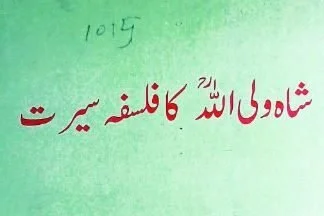 شاہ ولی اللہؒ کا فلسفہ سیرت